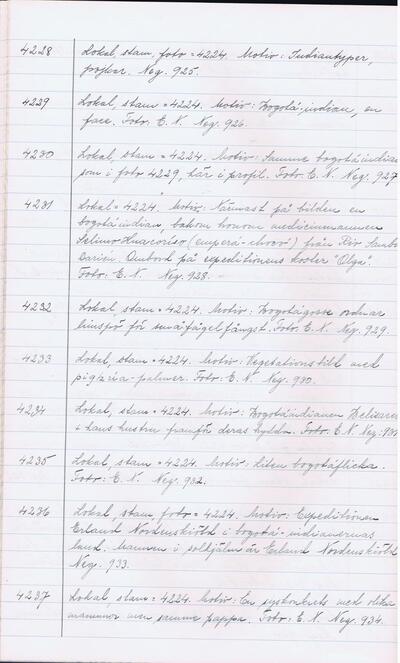 4228 Lokal, stam, foto = 4224. Motiv: Indiantyper,
pojkar. Neg. 925.
4229 Lokal, stam = 4224. Motiv: Bogotá-indian, en
face. Foto: E. N. Neg. 926.
4230 Lokal, stam = 4224. Motiv: Samme bogotáindian
som i foto 4229, här i profil. Foto: E. N. Neg. 927
4231 Lokal = 4224. Motiv: Närmast på bilden en
bogotáindian, bakom honom medicinmannen
Selimo Huacoriso (emperá-chocó) från Rio Sambú
Darien. Ombord på expeditionens skoter "Olga".
Foto: E. N. Neg. 928.
4232 Lokal, stam = 4224. Motiv: Bogotágosse ordnar
limspö för småfågelfångst. Foto: E. N. Neg. 929.
4233 Lokal, stam = 4224. Motiv: Vegetationsbild med
palmer. Foto: E. N. Neg. 930.
4234 Lokal, stam = 4224. Motiv: Bogotáindianen
+ hans hustru framför deras hydda. Foto: E. N. Neg. 931
4235 Lokal, stam = 4224. Motiv: Liten bogotáflicka.
Foto: E. N. Neg. 932.
4236 Lokal, stam, foto = 4224. Motiv: Expeditionen
Erland Nordenskiöld i bogotá-indianernas
land. Mannen i solhjälm är Erland Nordenskiöld
Neg. 933.
4237 Lokal, stam = 4224. Motiv: En syskonkrets med olika
mammor men samme pappa. Foto: E. N. Neg. 934.